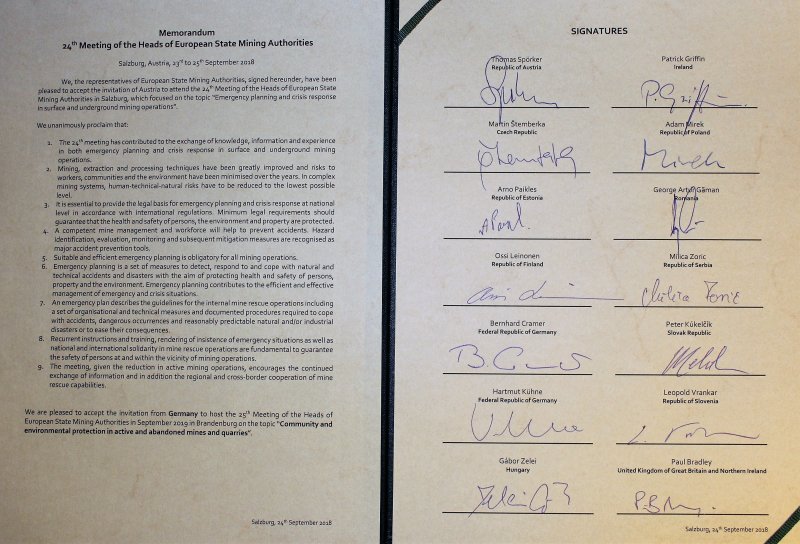 Memorandum
24th Meeting of the Heads of European State Mining Authorities
Salzburg, Austria, 23rd to 25th September 2018
We, the representatives of European State Mining Authorities, signed hereunder, have been
pleased to accept the invitation of Austria to attend the 24th Meeting of the Heads of European State
Mining Authorities in Salzburg, which focused on the topic "Emergency planning and crisis response
in surface and underground mining operations".
We unanimously proclaim that:
1. The 24th meeting has contributed to the exchange of knowledge, information and experience
in both emergency planning and crisis response in surface and underground mining
operations.
2. Mining, extraction and processing techniques have been greatly improved and risks to
workers, communities and the environment have been minimised over the years. In complex
mining systems, human-technical-natural risks have to be reduced to the lowest possible
level.
3. It is essential to provide the legal basis for emergency planning and crisis response at national
level in accordance with international regulations. Minimum legal requirements should
guarantee that the health and safety of persons, the environment and property are protected.
4. A competent mine management and workforce will help to prevent accidents. Hazard
identification, evaluation, monitoring and subsequent mitigation measures are recognised as
major accident prevention tools.
5. Suitable and efficient emergency planning is obligatory for all mining operations.
6. Emergency planning is a set of measures to detect, respond to and cope with natural and
technical accidents and disasters with the aim of protecting health and safety of persons,
property and the environment. Emergency planning contributes to the efficient and effective
management of emergency and crisis situations.
7. An emergency plan describes the guidelines for the internal mine rescue operations including
a set of organisational and technical measures and documented procedures required to cope
with accidents, dangerous occurrences and reasonably predictable natural and/or industrial
disasters or to ease their consequences.
8. Recurrent instructions and training, rendering of insistence of emergency situations as well as
national and international solidarity in mine rescue operations are fundamental to guarantee
the safety of persons at and within the vicinity of mining operations.
9. The meeting, given the reduction in active mining operations, encourages the continued
exchange of information and in addition the regional and cross-border cooperation of mine
rescue capabilities.
We are pleased to accept the invitation from Germany to host the 25th Meeting of the Heads of
European State Mining Authorities in September 2019 in Brandenburg on the topic "Community and
environmental protection in active and abandoned mines and quarries".
Salzburg, 24th September 2018
SIGNATURES
Thomas Spörker
Republic of Austria
Patrick Griffin
Ireland
P. Griffin
Martin Štemberka
Czech Republic
Adam Mirek
Republic of Poland
Mirek
Arno Paikles
Republic of Estonia
George Artur Găman
Romania
Ossi Leinonen
Republic of Finland
Milica Zoric
Republic of Serbia
Bernhard Cramer
Federal Republic of Germany
Peter Kúkelčík
Slovak Republic
Hartmut Kühne
Federal Republic of Germany
Leopold Vrankar
Republic of Slovenia
Gábor Zelei
Hungary
Paul Bradley
United Kingdom of Great Britain and Northern Ireland
Salzburg, 24th September 2018